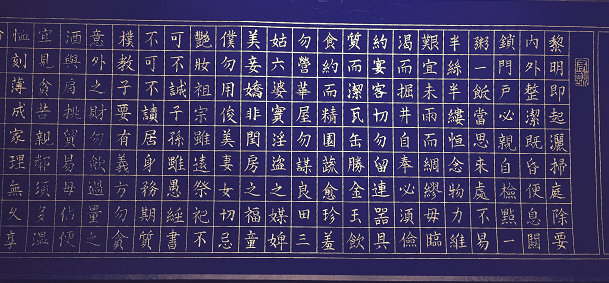 黎明即起灑掃庭除要
內外整潔既昏便息關
鎖門戶必親自檢點一
粥一飯當思來處不易
半絲半縷恒念物力維
艱宜未雨而綢繆毋臨
渴而掘井自奉必須儉
約宴客切勿留連器具
質而潔瓦缶勝金玉飲
食約而精園蔬愈珍羞
勿營華屋勿謀良田三
姑六婆實淫盜之媒婢
美妾嬌非閨房之福童
僕勿用俊美妻女切忌
艷妝祖宗雖遠祭祀不
可不誠子孫雖愚經書
不可不讀居身務期質
樸教子要有義方勿貪
意外之財勿飲過量之
酒與肩挑貿易毋佔便
宜見貧苦親鄰須多溫
恤刻薄成家理無久享